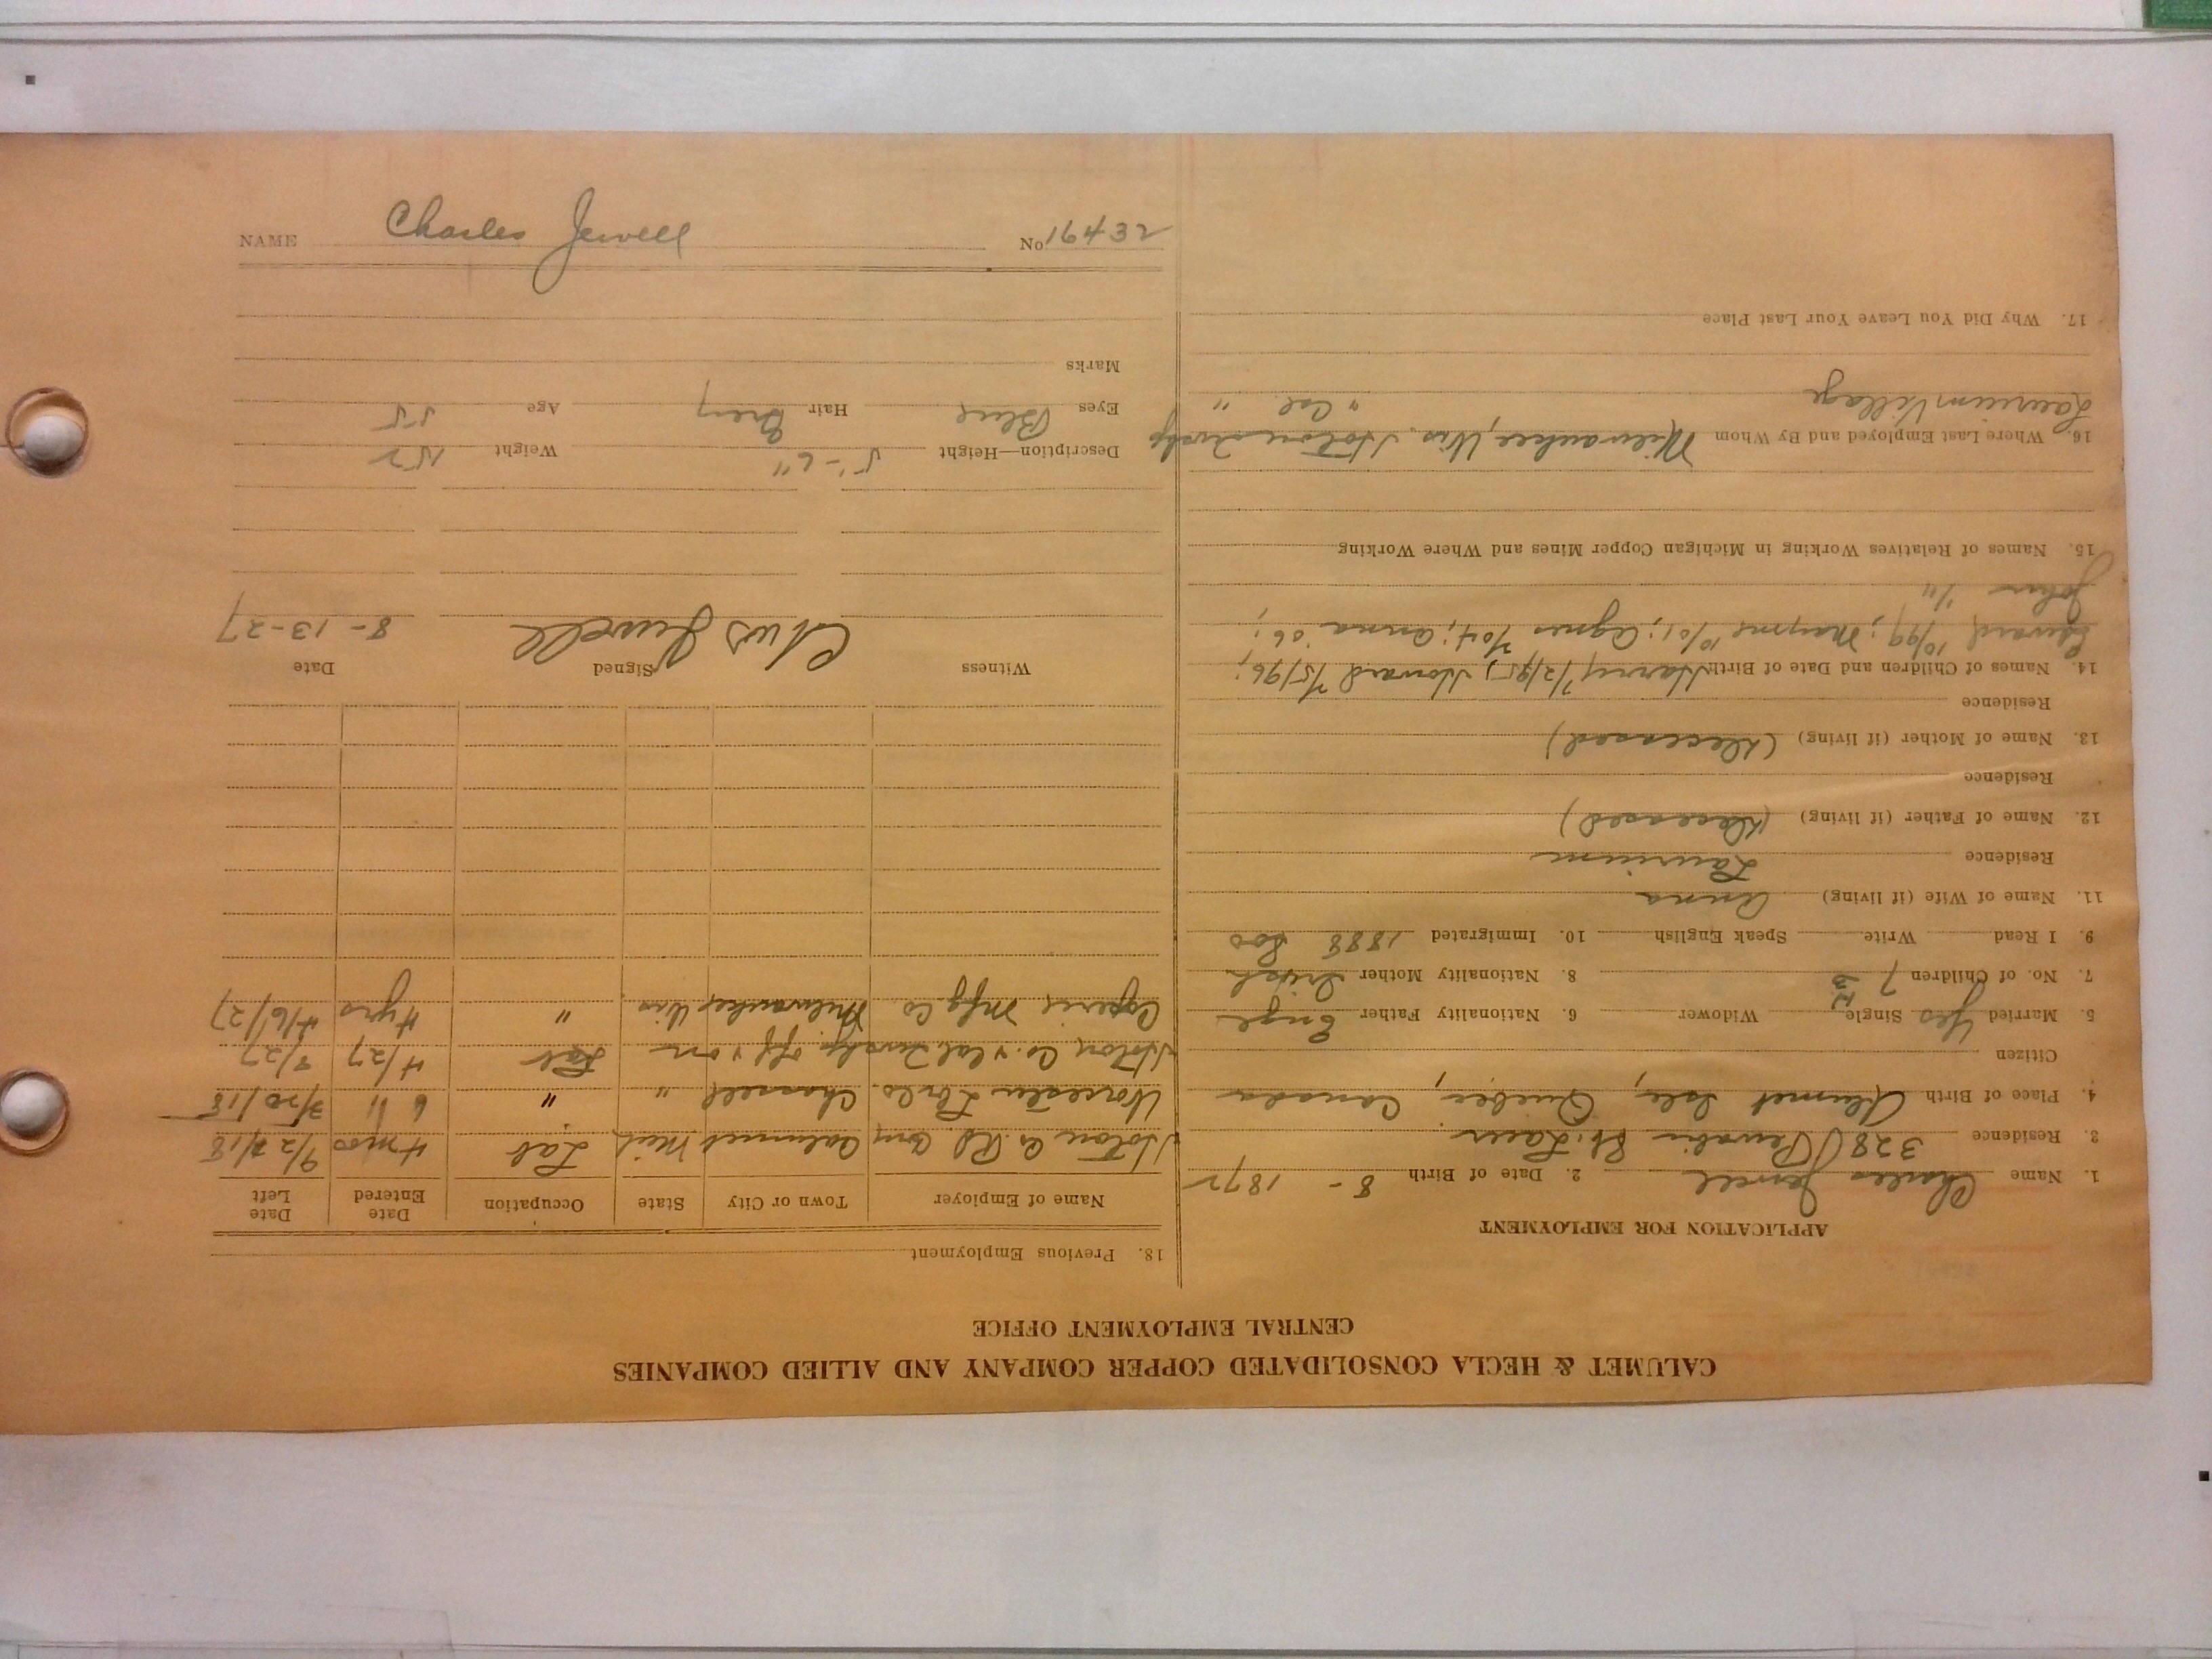 CALUMET & HECLA CONSOLIDATED COPPER COMPANY AND ALLIED COMPANIES
CENTRAL EMPLOYMENT OFFICE
APPLICATION FOR EMPLOYMENT
1. Name Charles Jewell 2. Date of Birth 8 - 1872
3. Residence 328 Pewabic St. Laur.
4. Place of Birth Calumet Isle, Quebec, Canada
Citizen
5. Married Yes Single Widower 6. Nationality Father Eng.
7. No. of Children 7 8. Nationality Mother Irish
9. I Read Write Speak English 10. Immigrated 1888 Soo
11. Name of Wife (if living) Anna
Residence Laurium
12. Name of Father (if living) (Deceased)
Residence
13. Name of Mother (if living) (Deceased)
Residence
14. Names of Children and Date of Birth Harry 7/2/95, Howard 7/5/96;
Edward 10/99; Mayme 10/01; Agnes 7/04; Anna '06;
John '11
15. Names of Relatives Working in Michigan Copper Mines and Where Working
16. Where Last Employed and By Whom Milwaukee, Wis. Hoton Twsp
Laurium Village " Cal. "
17. Why Did You Leave Your Last Place
18. Previous Employment
Name of Employer Town or City State Occupation Date Entered Date Left
Hoton Co. Rd Com Calumet Mich Lab 4 mos 9/27/18
Worcester Lbr Co. Chassell " " 6 " 3/20/18
Hoton Co. & Cal. Twsp off & on Lab 4/27 8/27
Mfg. Co Milwaukee Wis " 4 yrs 4/6/27
Witness Signed Date
Chas Jewell 8-13-27
Description—Height 5'-6" Weight 152
Eyes Blue Hair Grey Age 55
Marks
NAME Charles Jewell No 16432